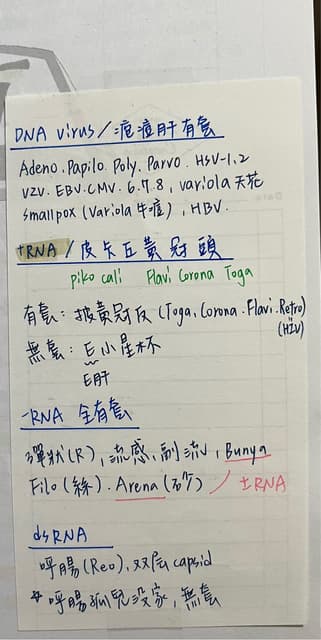 DNA virus / 疱痘肝有套
Adeno. Papilo. Poly. Parvo. HSV-1,2
VZV. EBV. CMV. 6.7.8, variola 天花
smallpox (Variola 牛痘), HBV.
+RNA / 皮卡丘黃冠頭
piko cali Flavi Corona Toga
有套: 披黃冠反 (Toga, Corona. Flavi. Retro)
(HIV)
無套: E小星杯
E肝
-RNA 全有套
彈狀(R), 流感, 副流, Bunya
Filo (絲). Arena (砂) / ±RNA
dsRNA
呼腸 (Reo), 双层 capsid
* 呼腸孤兒沒家, 無套